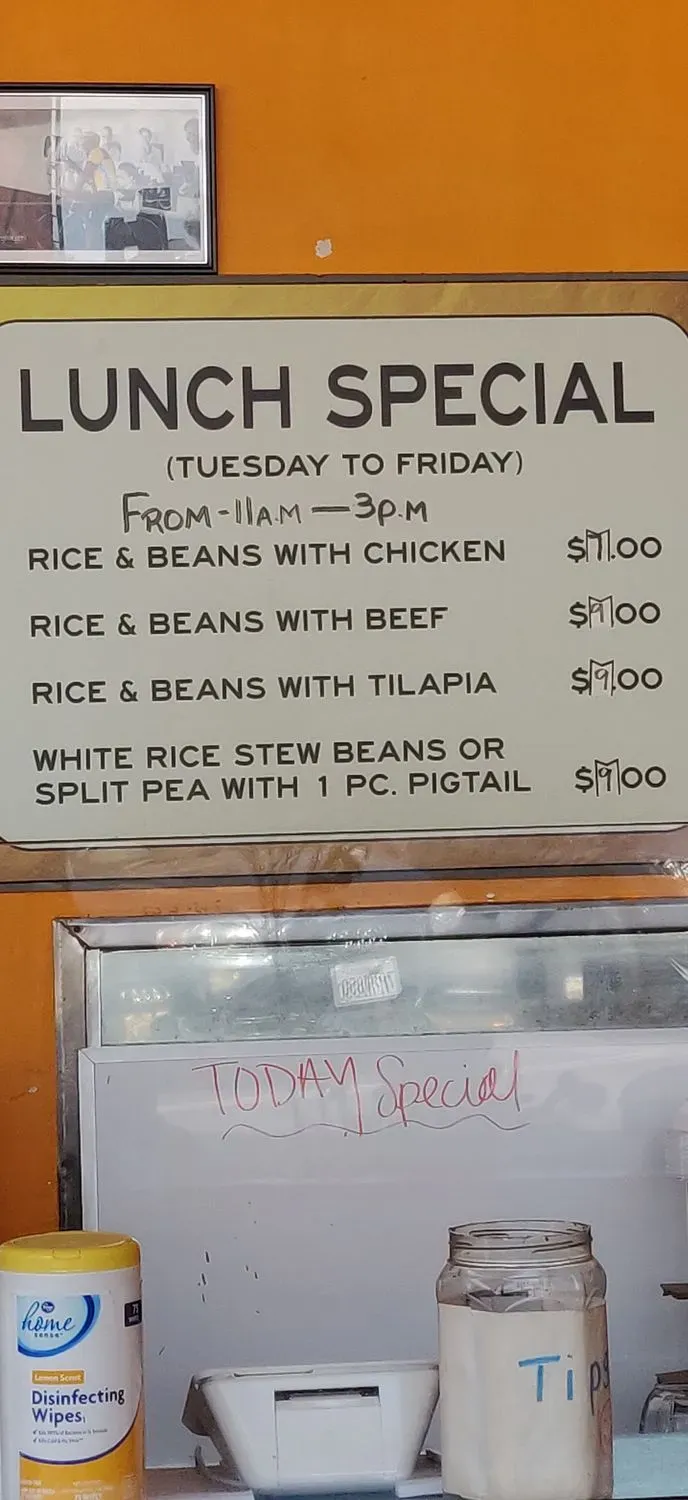 LUNCH SPECIAL
(TUESDAY TO FRIDAY)
FROM-11A.M—3P.M
RICE & BEANS WITH CHICKEN $7.00
RICE & BEANS WITH BEEF $9.00
RICE & BEANS WITH TILAPIA $9.00
WHITE RICE STEW BEANS OR
SPLIT PEA WITH 1 PC. PIGTAIL $9.00
TODAY Special
home
sense
Lemon Scent
Disinfecting
Wipes
Tips